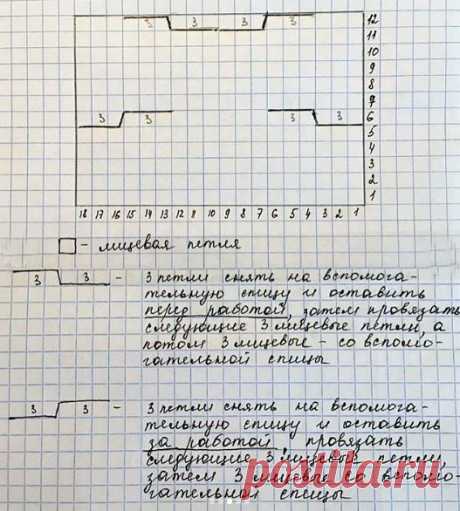 3 3 3 3 12
11
10
9
8
7
3 3 3 3 6
5
4
3
2
1
18 17 16 15 14 13 12 11 10 9 8 7 6 5 4 3 2 1
- лицевая петля
3 3 - 3 петли снять на вспомога-
тельную спицу и оставить
перед работой, затем провязать
следующие 3 лицевые петли, а
потом 3 лицевые - со вспомо-
гательной спицы
3 3 - 3 петли снять на вспомога-
тельную спицу и оставить
за работой, провязать
следующие 3 лицевые петли,
затем 3 лицевые со вспомо-
гательной спицы
postila.ru